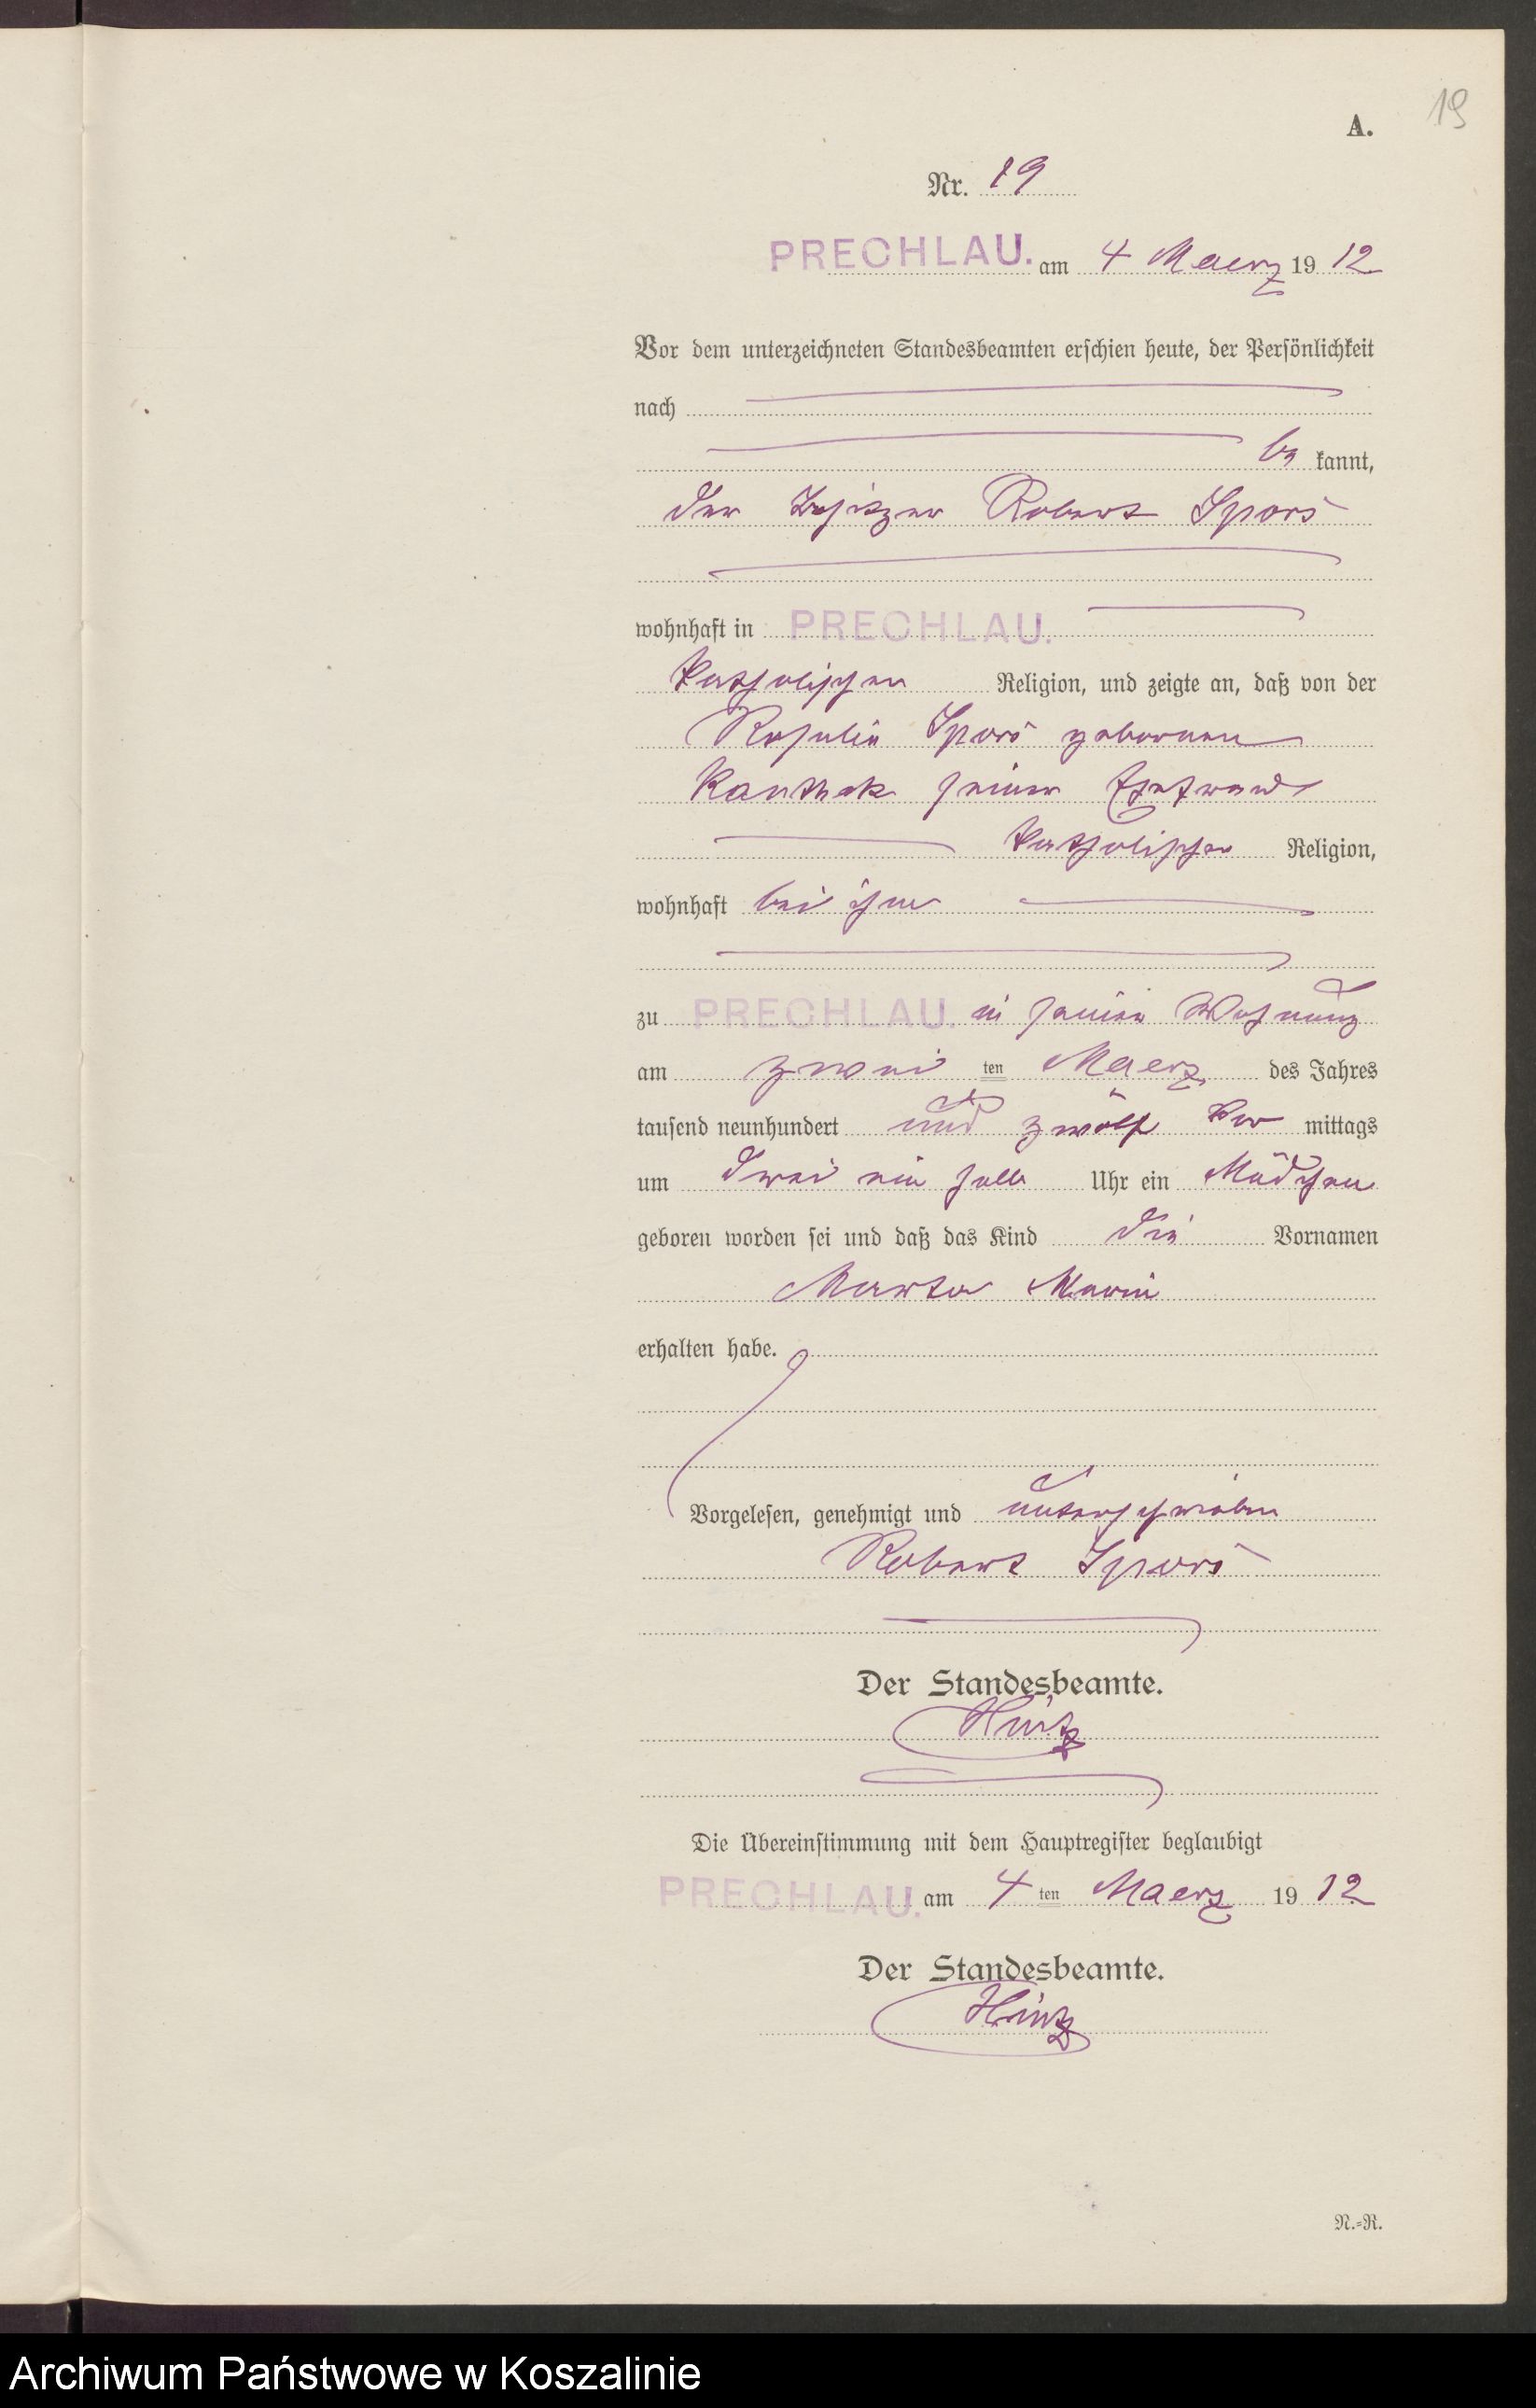 19
A.
Nr. 19
PRECHLAU. am 4 Maerz 1912
Vor dem unterzeichneten Standesbeamten erschien heute, der Persönlichkeit
nach
be kannt,
der Besitzer Robert Spors
wohnhaft in PRECHLAU.
katholischer Religion, und zeigte an, daß von der
Rosalie Spors geborenen
Kanthak seiner Ehefrau
katholischer Religion,
wohnhaft bei ihm
zu PRECHLAU. in seiner Wohnung
am zwei ten Maerz des Jahres
tausend neunhundert und zwölf Vor mittags
um ein halb Uhr ein Mädchen
geboren worden sei und daß das Kind die Vornamen
Marta Marie
erhalten habe.
Vorgelesen, genehmigt und unterschrieben
Robert Spors
Der Standesbeamte.
Hintz
Die Übereinstimmung mit dem Hauptregister beglaubigt
PRECHLAU. am 4 ten Maerz 1912
Der Standesbeamte.
Hintz
N.=R.
Archiwum Państwowe w Koszalinie